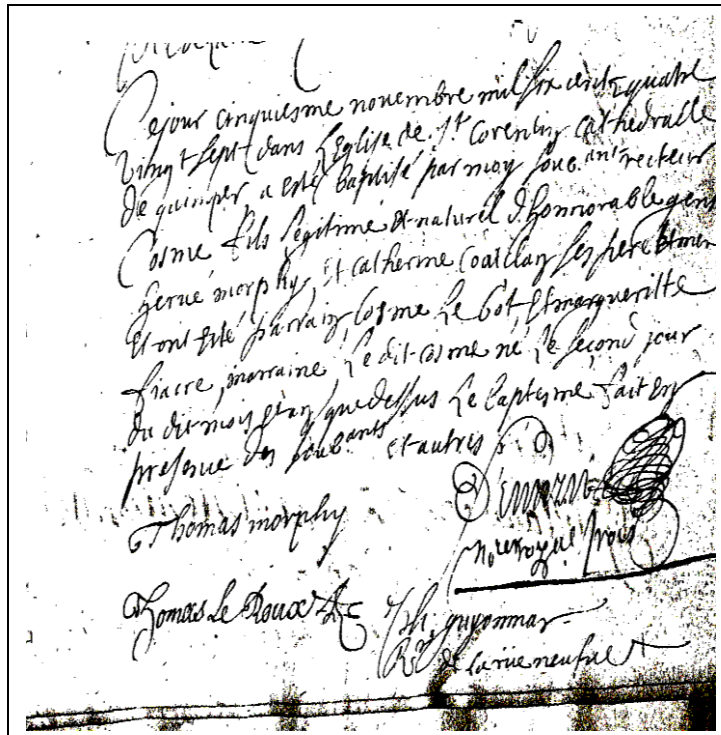 Cejour cinquiesme novembre mil six cent quatre
vingt sept dans Leglise de St Corentin cathedralle
de quimper, a esté baptisé par moy soub.ant recteur
Cosme fils legitime et naturel d'honnorable gens
hervé morphy, Et catherine Coatclan ses pere Et mere
Et ont esté parrain Cosme Le Got Et margueritte
fiacre, marraine Le dit cosme né Le second jour
du dit mois que dessus Le baptesme fait En
presence des soub.ants et autres
Thomas morphy
No.re Royal
Thomas Le Roux
guyonmar
Rr de la rue neufve